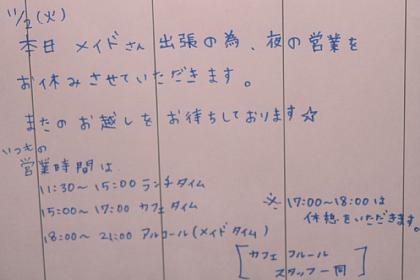 11/2(火)
本日 メイドさん 出張の為、夜の営業を
お休みさせていただきます。
またの お越しを お待ちしております☆
いつもの
営業時間は
11:30〜15:00 ランチタイム
15:00〜17:00 カフェタイム
18:00〜21:00 アルコール(メイドタイム)
※17:00〜18:00は
休憩をいただきます。
[カフェ フルール
スタッフ一同]